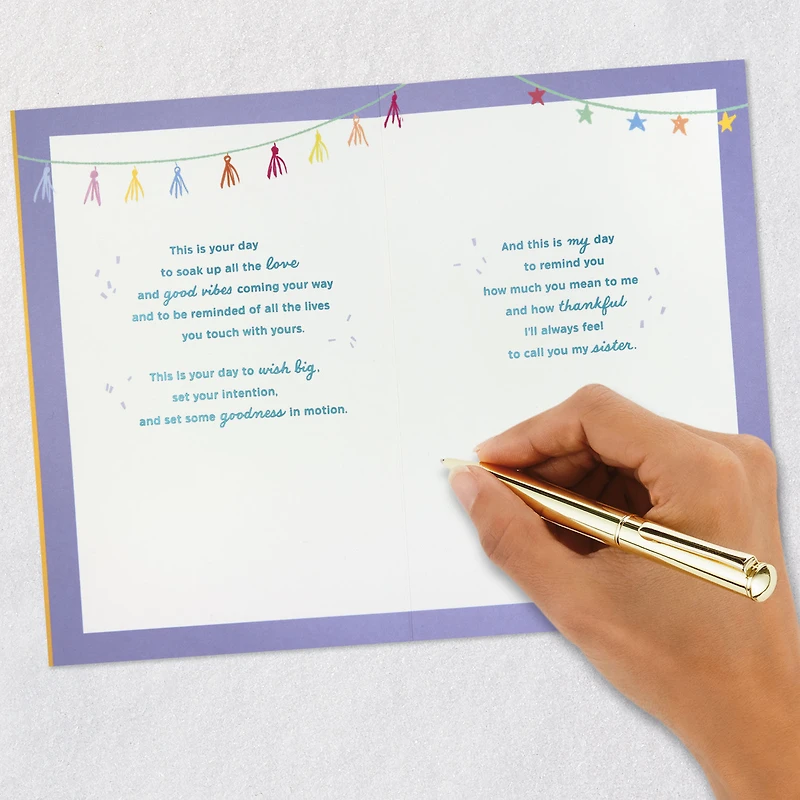 This is your day
to soak up all the love
and good vibes coming your way
and to be reminded of all the lives
you touch with yours.
This is your day to wish big,
set your intention,
and set some goodness in motion.
And this is my day
to remind you
how much you mean to me
and how thankful
I'll always feel
to call you my sister.